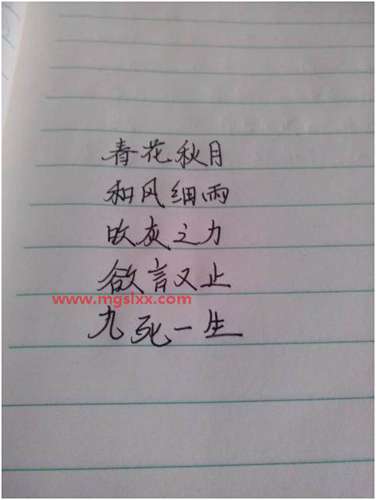 春花秋月
和风细雨
吹灰之力
欲言又止
www.mgslxx.com
九死一生